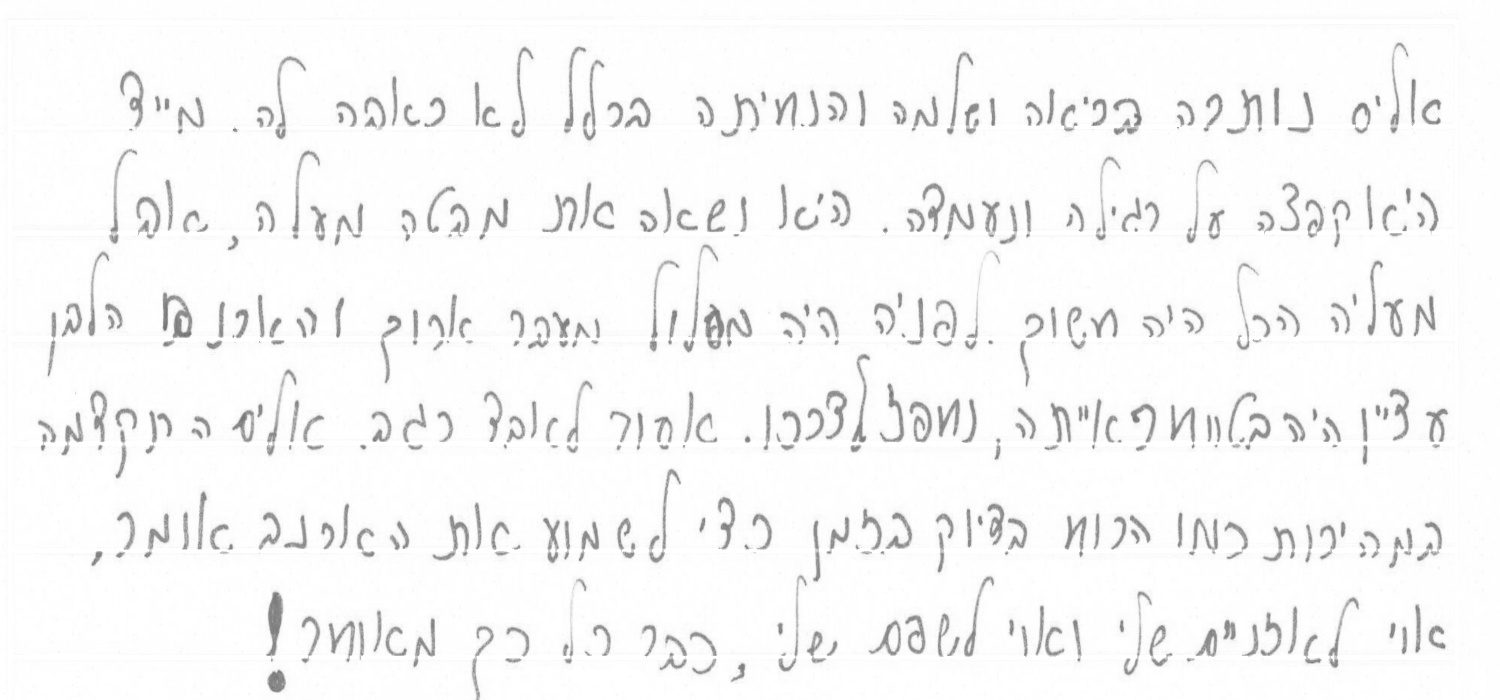 אליס נותרה בריאה ושלמה והנחיתה בכלל לא כאבה לה. מייד
היא קפצה על רגילה ונעמדה. היא נשאה את מבטה מעלה, אבל
מעליה הכל היה חשוך. לפניה היה מסלול מעבר ארוך והארנב הלבן
עדיין היה בטווח ראייתה, נחפז לדרכו. אסור לאבד רגב. אליס התקדמה
במהירות כמו הרוח בדיוק בזמן כדי לשמוע את הארנב אומר,
אוי לאוזניים שלי ואוי לשפם שלי, כבר כל כך מאוחר!